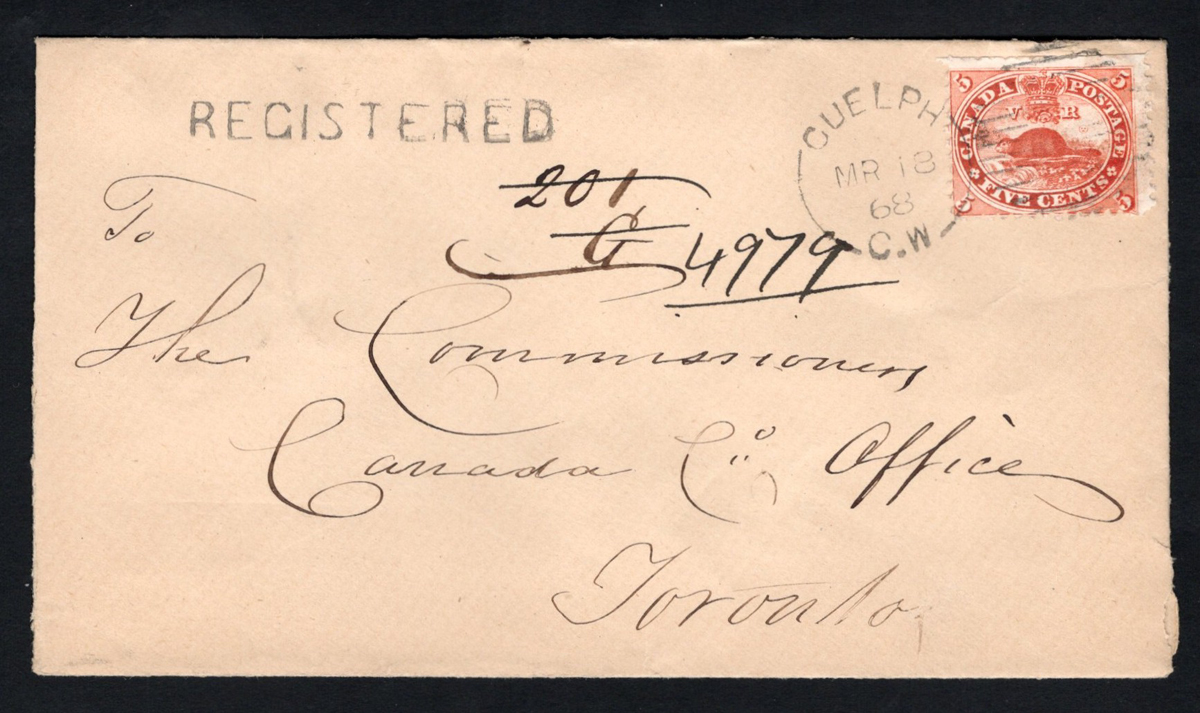 REGISTERED
GUELPH
MR 18
68
C.W
5 5
CANADA POSTAGE
V R
FIVE CENTS
5 5
201
G
4979
To
The Commissioners
Canada Co. Office
Toronto